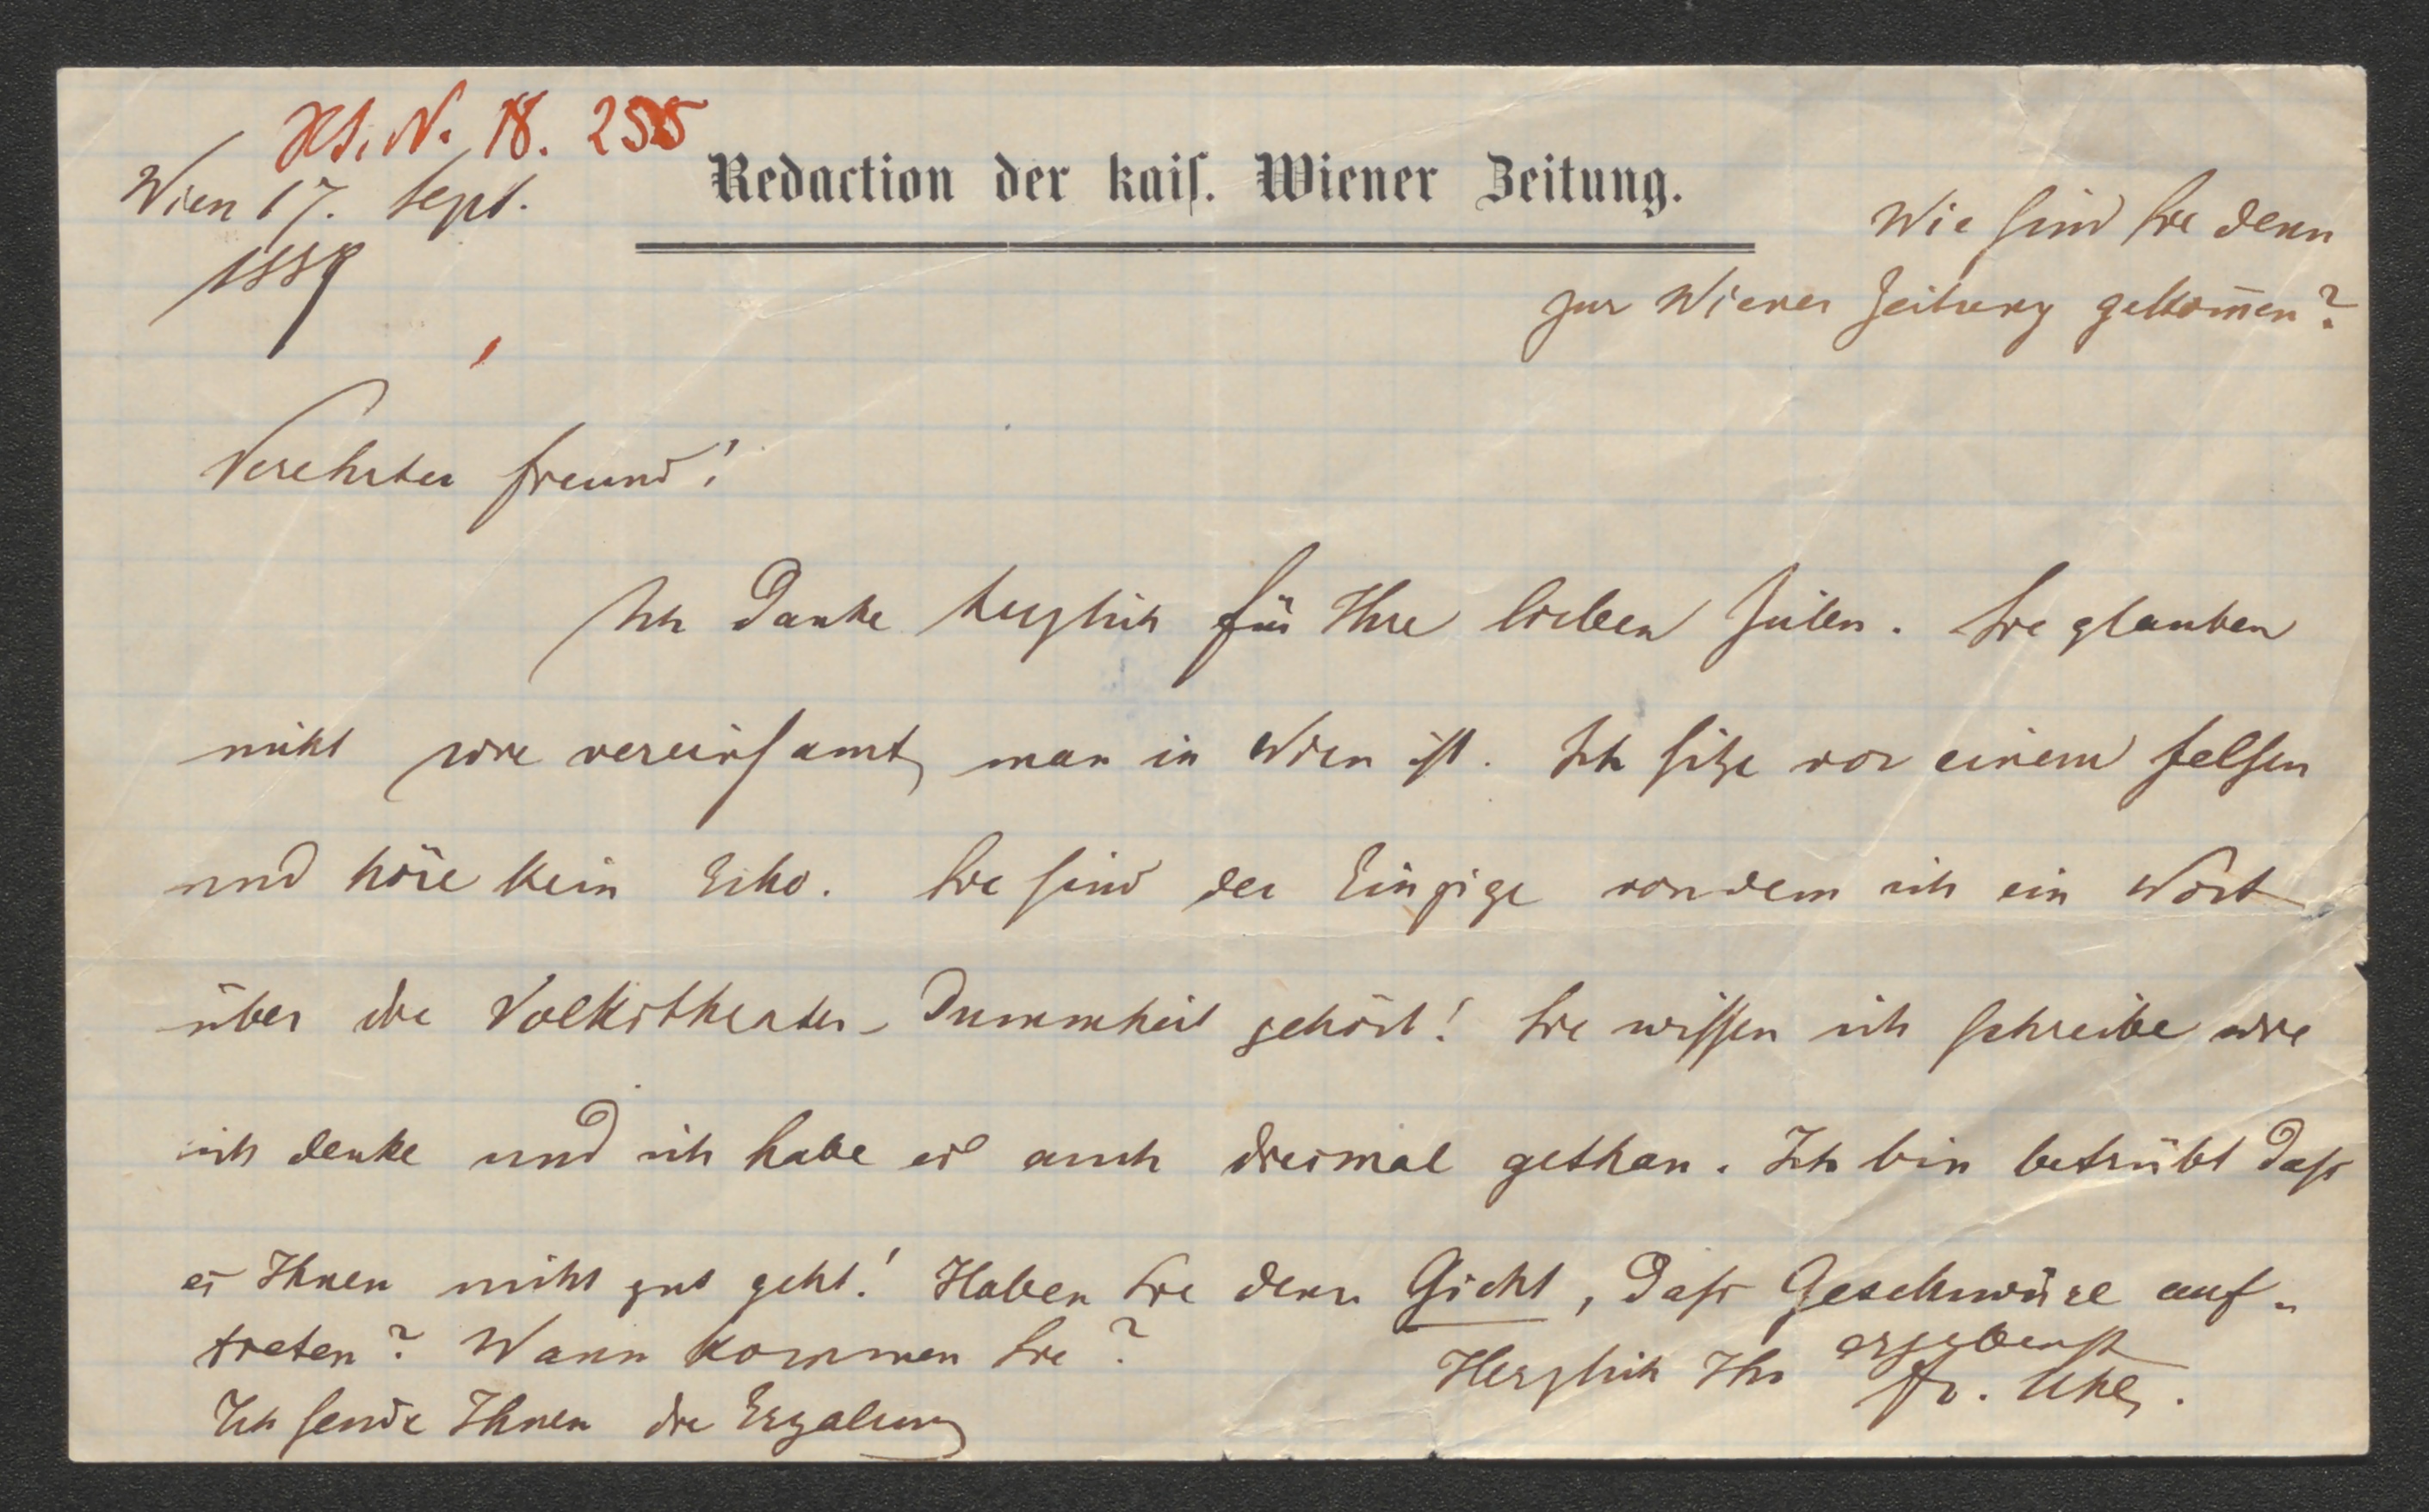 H.I.N. 18. 255
Wien 17. Sept.
1889
Redaction der kais. Wiener Zeitung.
Wie sind Sie denn
zur Wiener Zeitung gekom̄en?
Verehrter Freund!
Ich danke herzlich für Ihre lieben Zeilen. Sie glauben
nicht wie vereinsamt man in Wien ist. Ich sitze vor einem Felsen
und höre kein Echo. Sie sind der Einzige von dem ich ein Wort
über die Volkstheater-Dummheit gehört! Sie wissen ich schreibe wie
ich denke und ich habe es auch dreimal gethan. Ich bin betrübt daß
es Ihnen nicht gut geht! Haben Sie denn Gicht, daß Geschwüre auf-
treten? Wann kommen Sie?
Herzlich Ihr ergebenst
Fr. Uhl.
Ich sende Ihnen die Erzalung